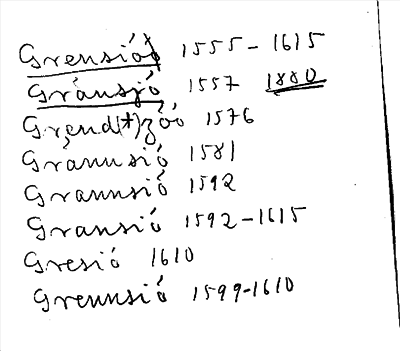 Grensióó 1555-1615
Gränsjö 1557 1880
Grend(t)zóó 1576
Grannsió 1581
Grannsió 1592
Gransió 1592-1615
Gresió 1610
Grennsió 1599-1610